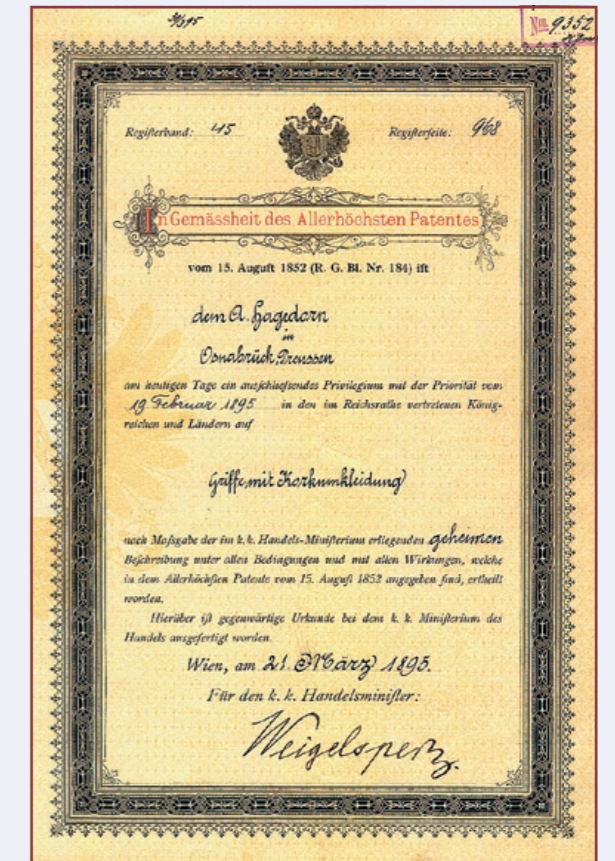 Nro. 9352
Registerband: 45
Registerseite: 968
In Gemässheit des Allerhöchsten Patentes
vom 15. August 1852 (R. G. Bl. Nr. 184) ist
dem A. Hagedorn
in
Osnabrück, Preussen
am heutigen Tage ein ausschliefsendes Privilegium mit der Priorität vom
19. Februar 1895 in den im Reichsrathe vertretenen König-
reichen und Ländern auf
Griffe mit Korkumkleidung
nach Mafsgabe der im k. k. Handels-Ministerium erliegenden geheimen
Beschreibung unter allen Bedingungen und mit allen Wirkungen, welche
in dem Allerhöchsten Patente vom 15. August 1852 angegeben sind, ertheilt
worden.
Hierüber ist gegenwärtige Urkunde bei dem k. k. Ministerium des
Handels ausgefertigt worden.
Wien, am 21. März 1895.
Für den k. k. Handelsminister: